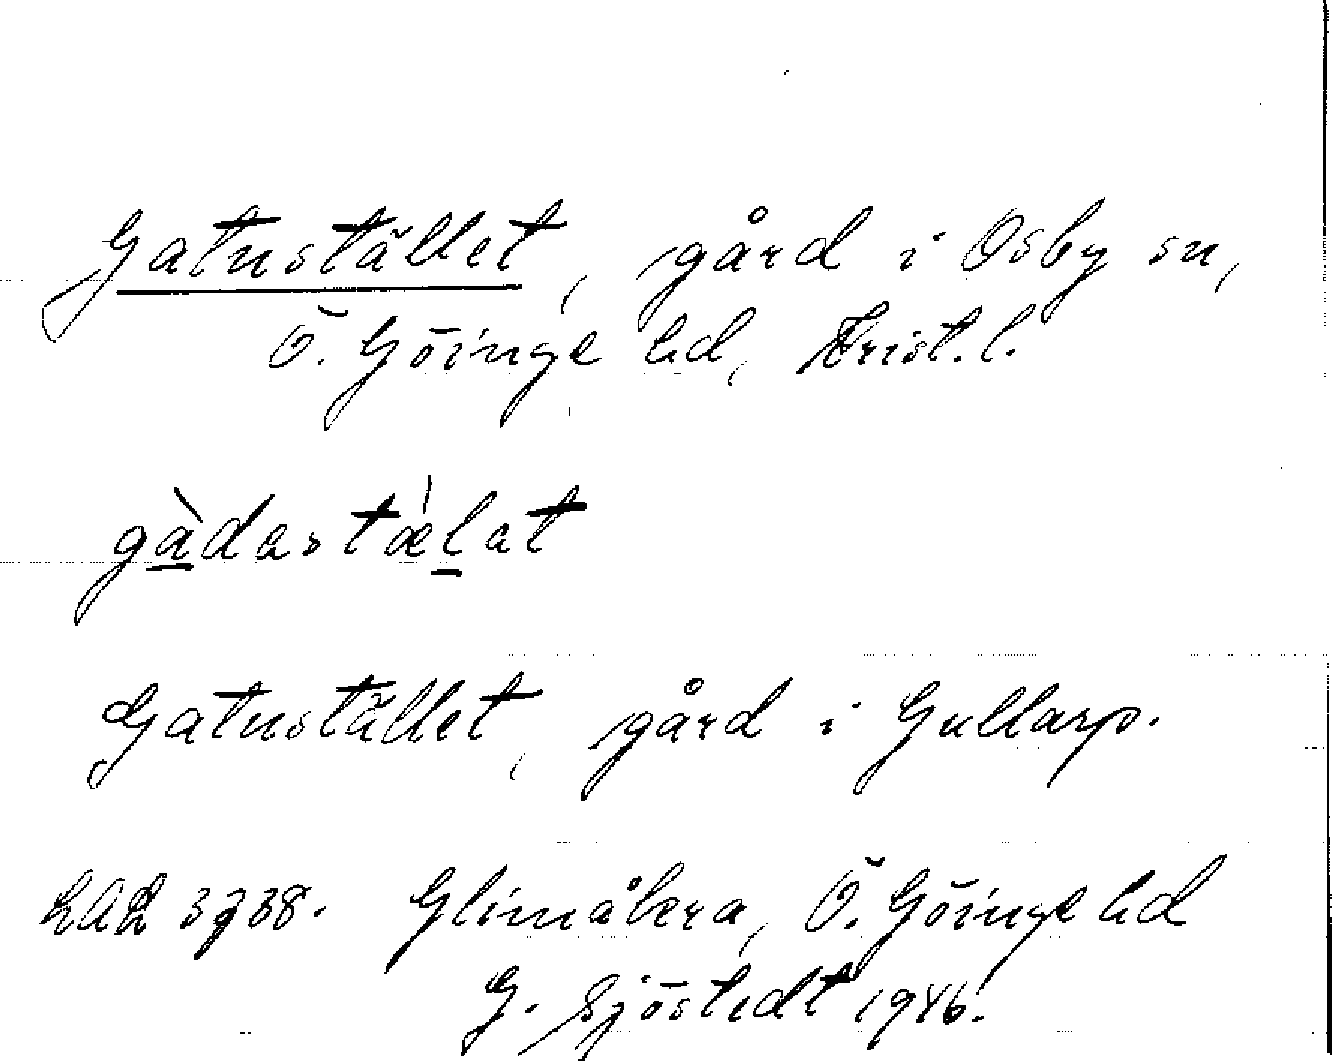 Gatustället, gård i Osby sn,
Ö. Göinge hd, Krist.l.
gàdastæ̀lat
Gatustället, gård i Gullarp.
LAL 3738. Glimåkra, Ö. Göinge hd
G. Sjöstedt 1946.